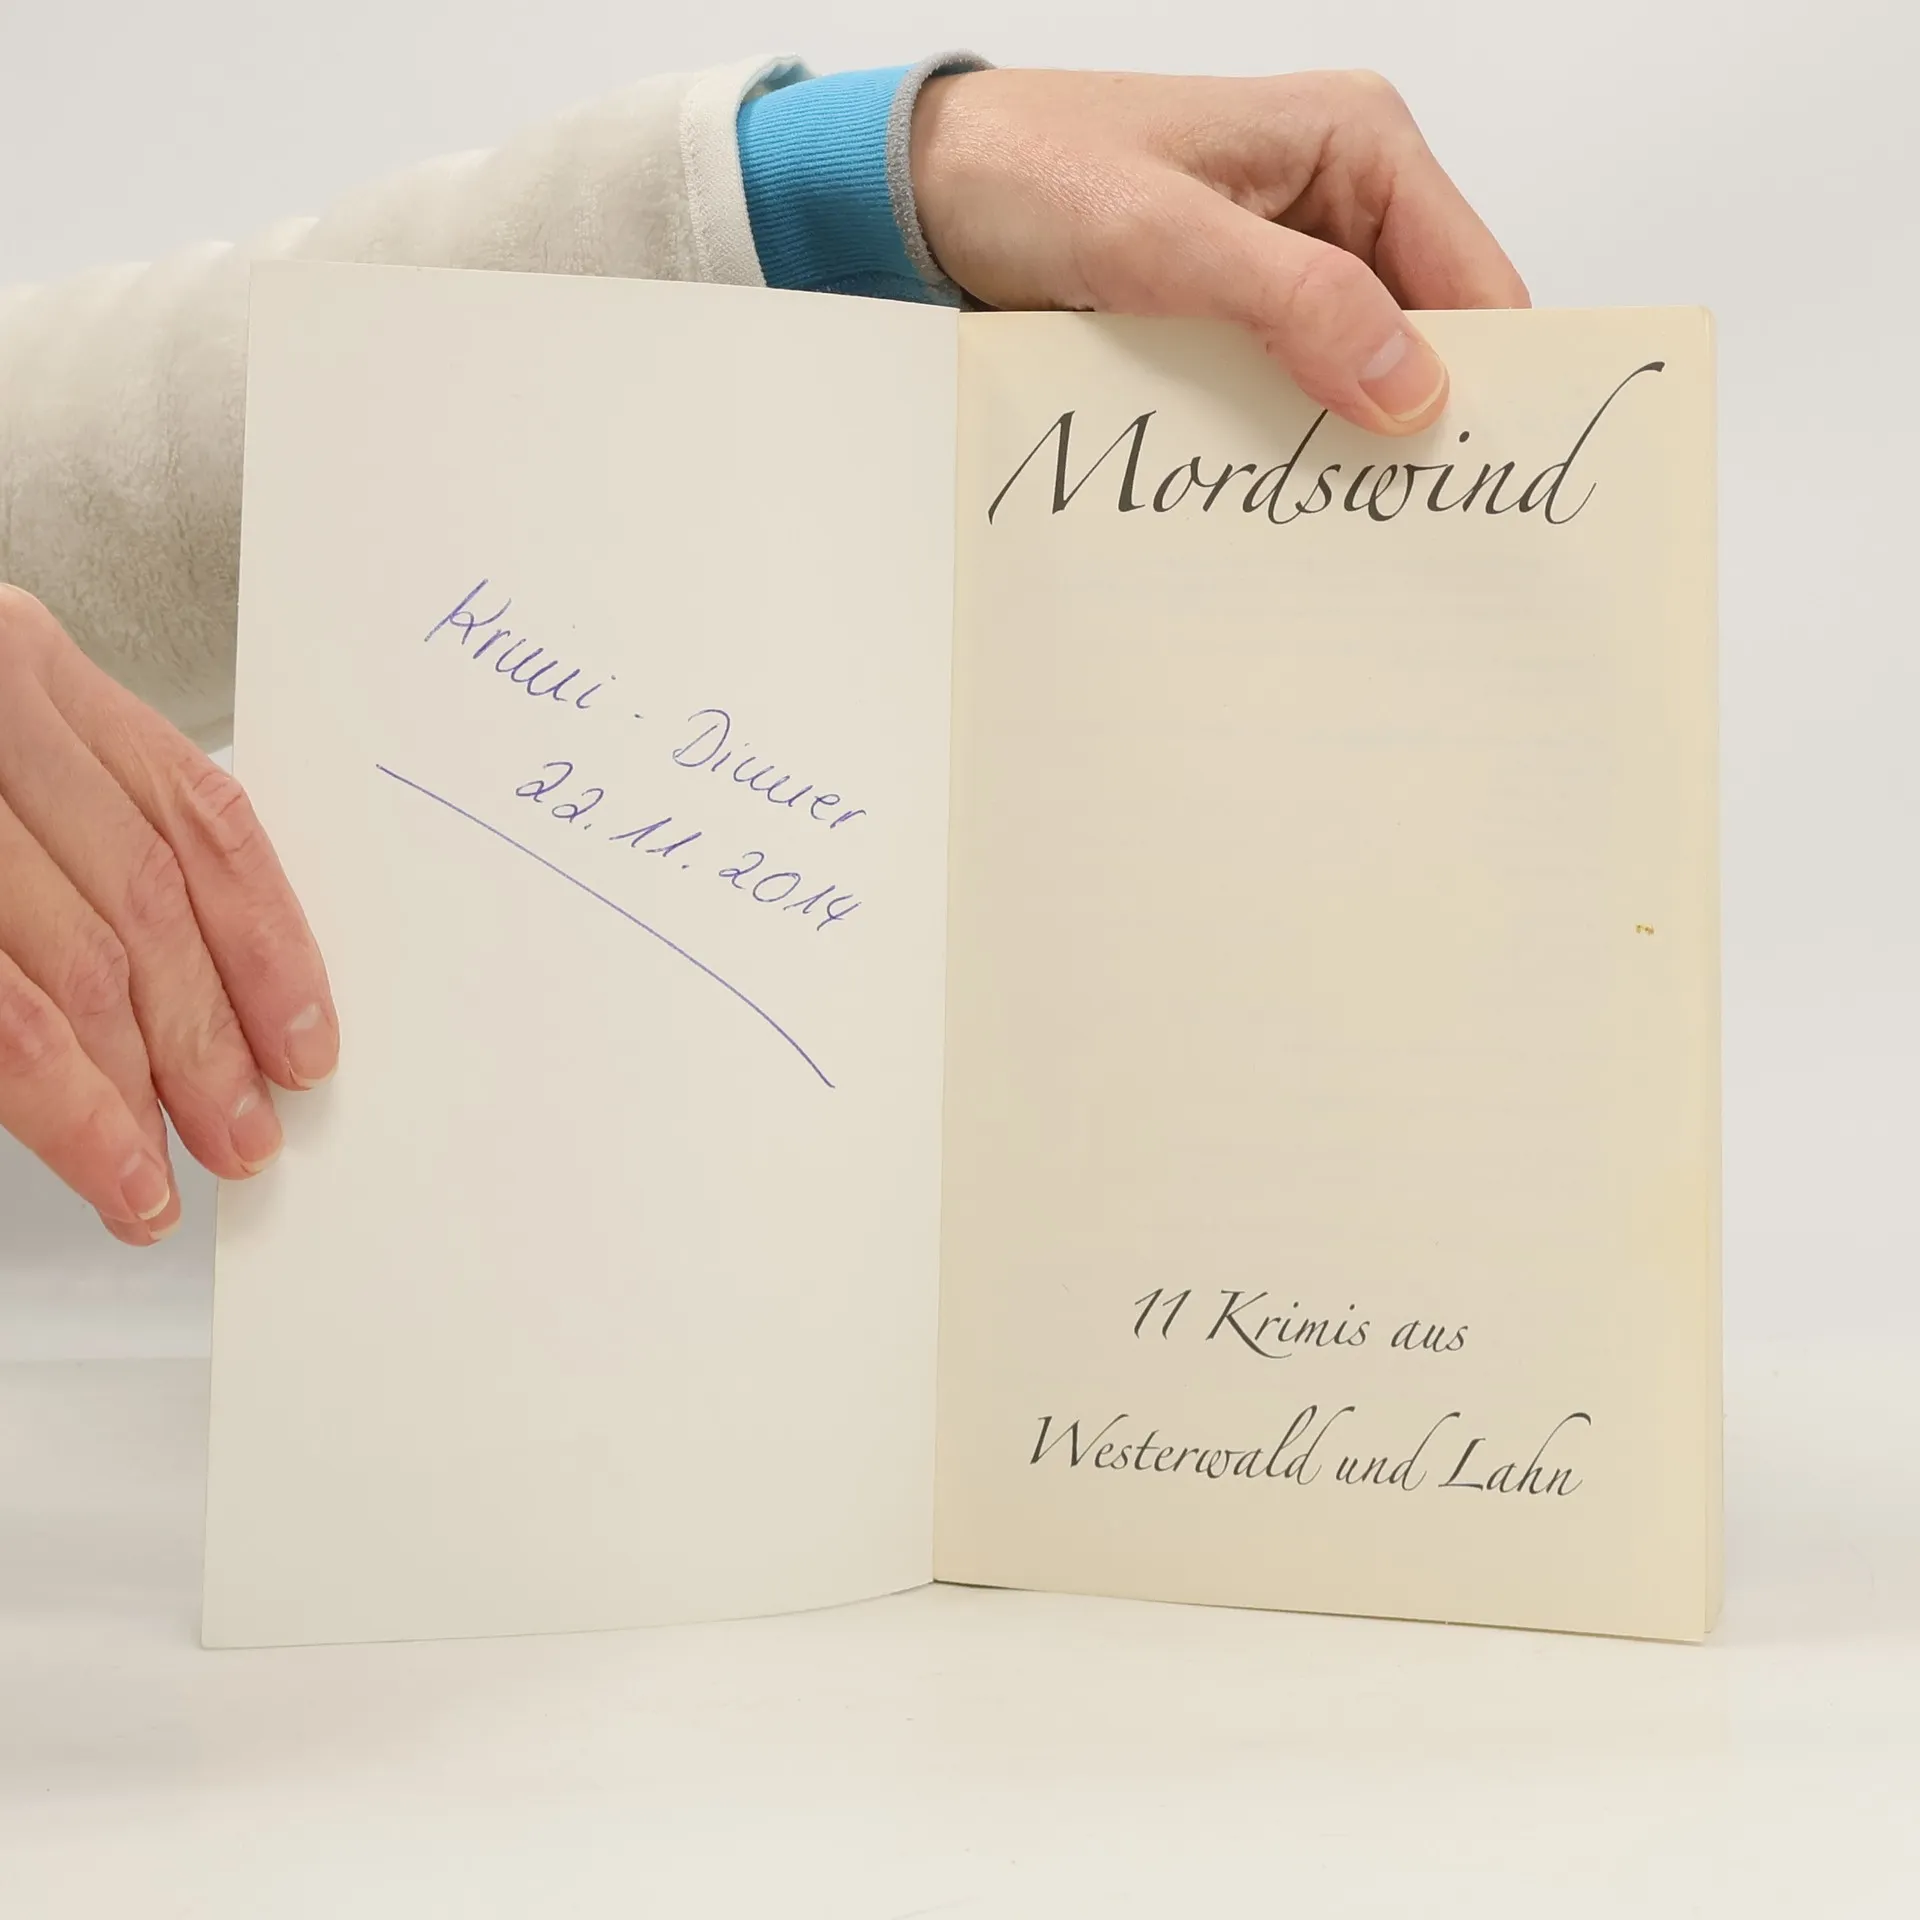 Krimi - Dinner
22.11.2014
Mordswind
11 Krimis aus
Westerwald und Lahn